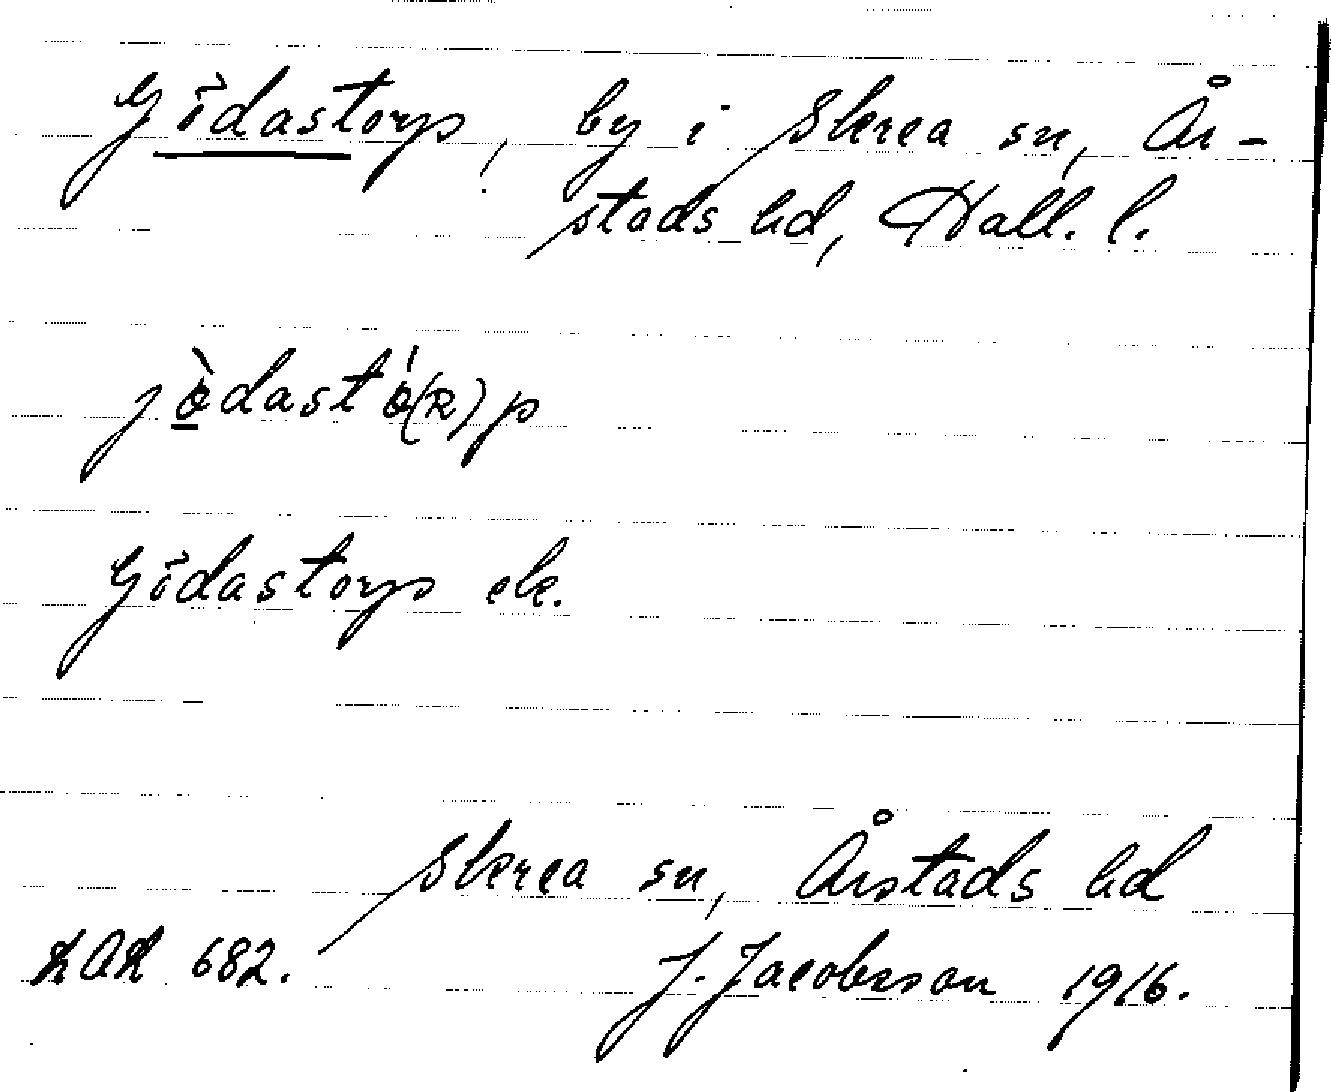 Gödastorp, by i Skrea sn, År-
stads hd, Hall. l.
jö̀dastó(R)p
Gödastorp ek.
Skrea sn, Årstads hd
682.
J. Jacobsson 1916.